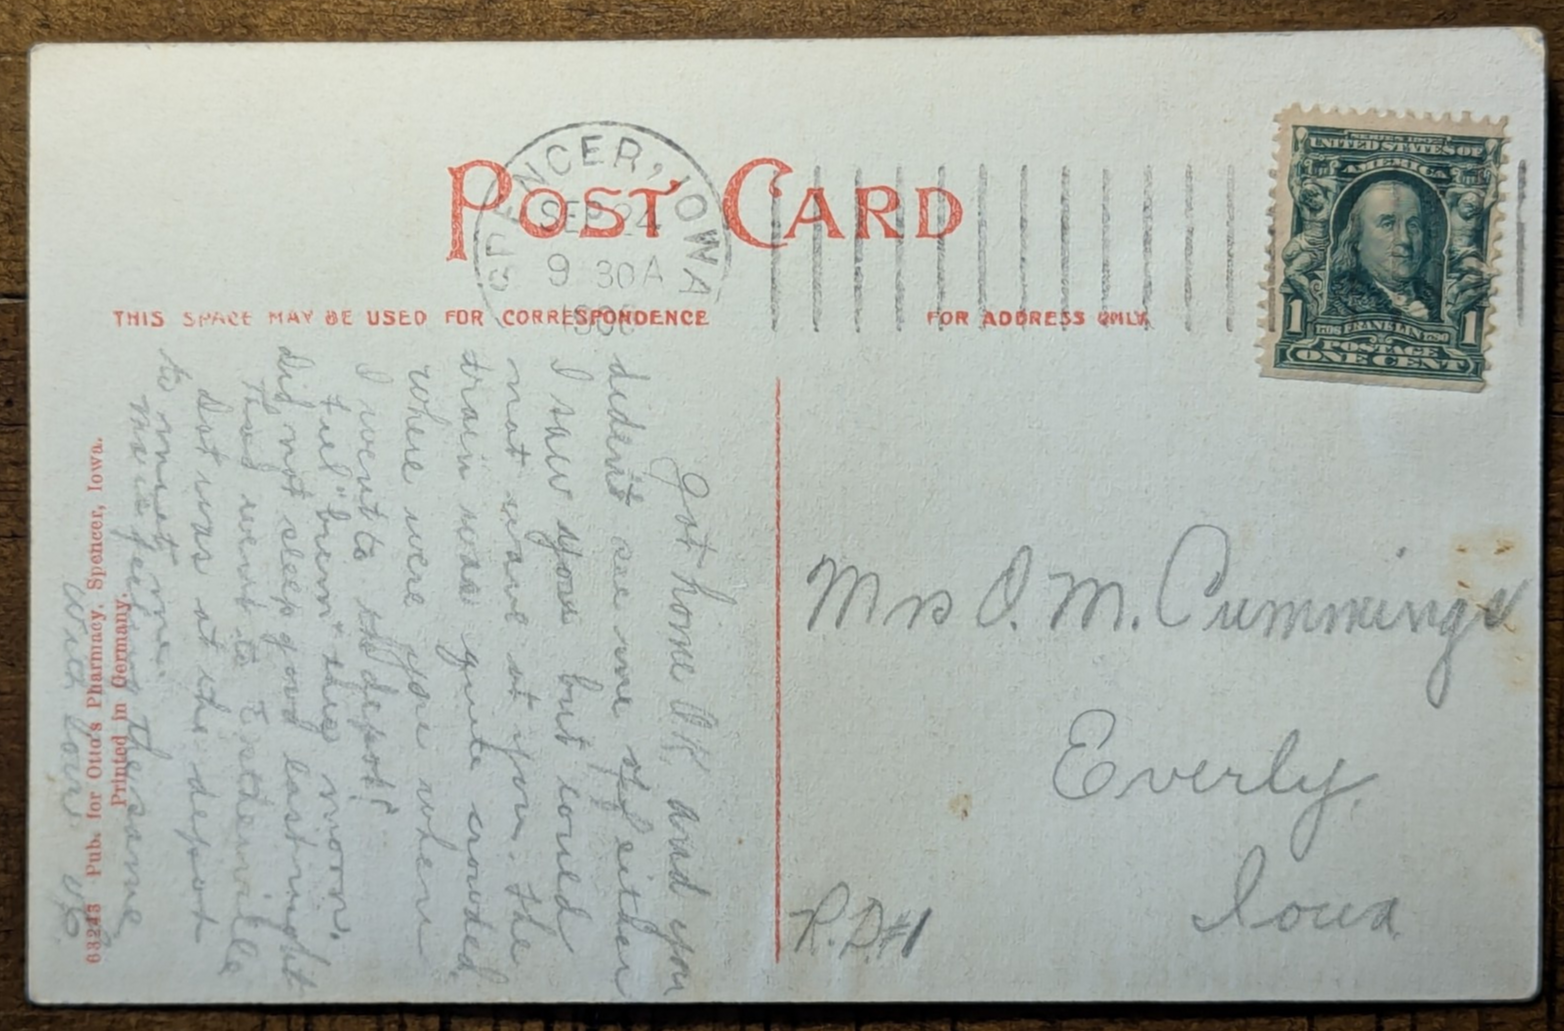 POST CARD
SPENCER, IOWA
SEP 24
9 30 A
THIS SPACE MAY BE USED FOR CORRESPONDENCE
FOR ADDRESS ONLY
SERIES 1902
UNITED STATES OF
AMERICA
1 1
FRANKLIN
POSTAGE
ONE CENT
Got home O.K. and you
dident see me either
I saw you but could
not wave at you. the
train was quite crowded
where were you when
I went to depot?
"bum" this morn.
Did not sleep good last night
that went to
Dot was at the depot
to meet me.
the same
with love
Mrs O. M. Cummings
Everly,
Iowa
R.D.#1
63243 Pub. for Otto's Pharmacy, Spencer, Iowa.
Printed in Germany.